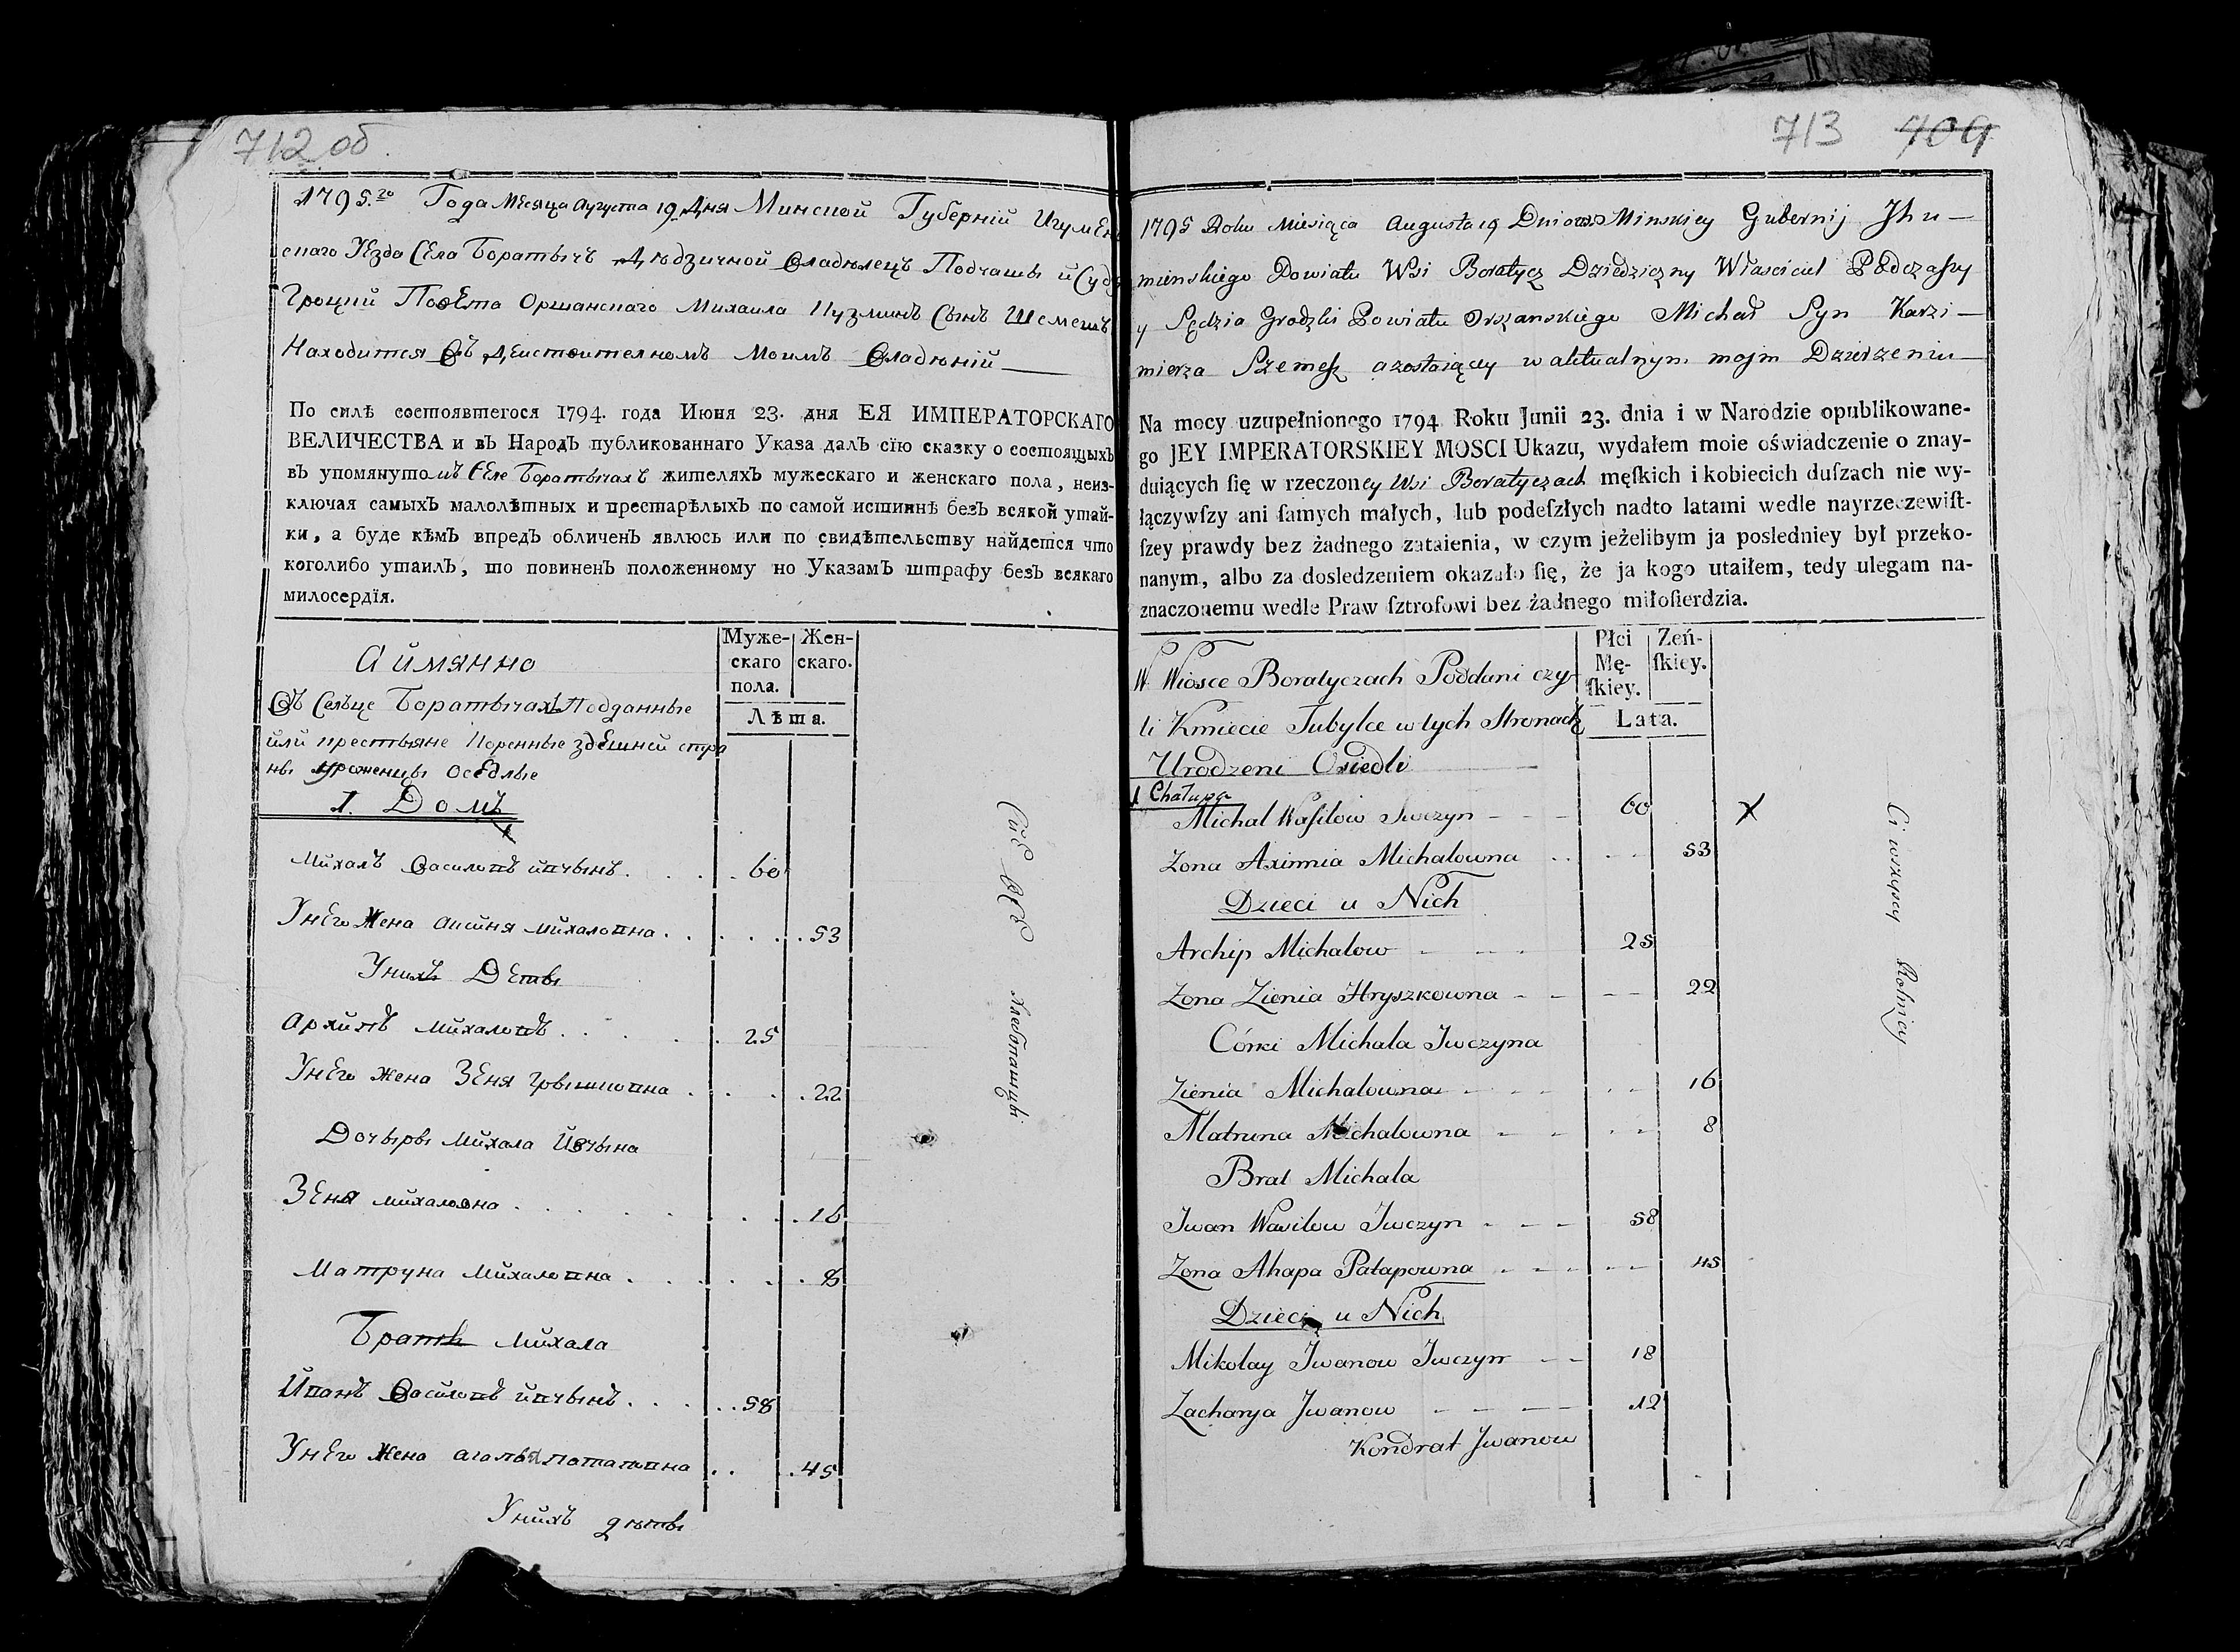 712 об
1795.го Года Месяца Августа 19 Дня Минской Губерніи Игумен
скаго Уезда Села Боратычъ Дѣдзичной Владѣлецъ Подчашы и Судя
Гроцкий Повета Оршанскаго Михаила Кузминъ Сынъ Шемешъ
Находится въ Действителномъ Моимъ Владѣній
По силѣ состоявшегося 1794. года Июня 23. дня ЕЯ ИМПЕРАТОРСКАГО
ВЕЛИЧЕСТВА и въ Народъ публикованнаго Указа далъ сїю сказку о состоящыхъ
въ упомянутомъ Селе Боратычахъ жителяхъ мужескаго и женскаго пола, неиз-
ключая самыхъ малолѣтныхъ и престарѣлыхъ по самой истиннѣ безъ всякой утай-
ки, а буде кѣмъ впредъ обличенъ явлюсь или по свидѣтельству найдется что
коголибо утаилъ, то повиненъ положенному по Указамъ штрафу безъ всякаго
милосердїя.
Муже-
скаго
пола.
Жен-
скаго.
Лѣта.
А Имянно
Въ Селъце Боратычахъ Подданные
или крестьяне Коренные здешней стра
ны уроженцы оседлые
1. Домъ
Михалъ Василовъ Ивчынъ. 60
У него Жена Аксиня Михаловна. 53
У нихъ Деты
Архипъ Михаловъ. 25
У него Жена Зеня Грышковна. 22
Дочыры Михала Ивчына
Зеня Михаловна. 16
Матруна Михаловна. 8
Братъ Михала
Иванъ Василовъ Ивчынъ. 58
У него Жена Агапья Потаповна. 45
У нихъ дѣты
Сии все хлебопашцы
713 709
1795 Roku Miesiąca Augusta 19 Dnia Minskiey Gubernij Jhu-
mienskiego Powiatu Wsi Boratycz Dziedziczny Własciciel Podczaszy
y Sędzia Grodzki Powiatu Orszanskiego Michał Syn Kazi-
mierza Szemesz a zostaiący w aktualnym mojm Dzierzeniu
Na mocy uzupełnionego 1794 Roku Junii 23. dnia i w Narodzie opublikowane-
go JEY IMPERATORSKIEY MOSCI Ukazu, wydałem moie oświadczenie o znay-
duiących ſię w rzeczoney Wsi Boratyczach męſkich i kobiecich duſzach nie wy-
łączywſzy ani ſamych małych, lub podeſzłych nadto latami wedle nayrzeczewiſt-
ſzey prawdy bez żadnego zataienia, w czym jeżelibym ja posledniey był przeko-
nanym, albo za dosledzeniem okazało ſię, że ja kogo utaiłem, tedy ulegam na-
znaczonemu wedle Praw ſztrofowi bez żadnego miłoſierdzia.
Płci
Mę-
ſkiey.
Zeń-
ſkiey.
Lata.
W Wiosce Boratyczach Poddani czy-
li Kmiecie Tubylce w tych Stronach
Urodzeni Osiedli
1 Chałupa
Michal Wasilow Iwczyn 60 X
Zona Aximia Michalowna 53
Dzieci u Nich
Archip Michalow 25
Zona Zienia Hryszkowna 22
Córki Michala Iwczyna
Zienia Michalowna 16
Matruna Michalowna 8
Brat Michala
Jwan Wasilow Jwczyn 58
Zona Ahapa Patapowna 45
Dzieci u Nich
Mikolay Jwanow Jwczyn 18
Zacharyja Jwanow 12
Kondrat Jwanow
Ci wszyscy Rolnicy